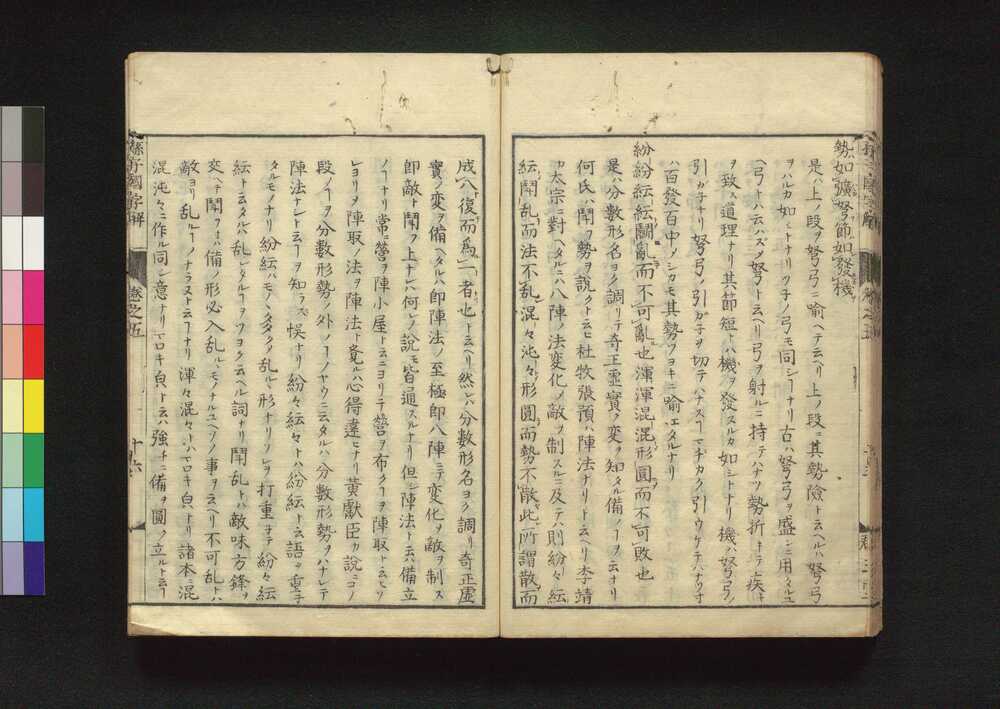 勢如彍弩節如發機
是ハ上ノ段ヲ弩弓ニ喩ヘテ云ヘリ上ノ段ニ其勢險ト云ヘルハ弩ヲ弓
ヲハルカ如シトナリツネノ弓モ同シコトナリ古ハ弩弓ヲ盛ンニ用タルユ
ヘ弓トハ云ハズ弩トハ云ヘリ弓ヲ射ルニ持テハナツ勢折キテ疾キ
ヲ致ス道理ナリ其節短トハ機ヲ發スルカ如シトナリ機ハ弩弓ノ
引カ子ナリ弩弓ノ引カ子ヲ切テハナスコト
ハ百發百中ノシカモ其勢ツヨキニ喩エタルナリ
紛紛紜紜鬪亂而不可亂也渾渾混混形圓而不可敗也
是ハ分數形名ヨク調リテ奇正虛實ヲ變ヲ知タル備ノコトヲ云ナリ
何氏ハ鬪フ勢ヲ說クト云ヒ杜牧張預ハ陣法ナリト云ヘリ李靖
カ太宗ニ對ヘタルニハ八陣ノ法變化ノ敵ヲ制スルニ及テハ則紛々紜
紜鬪亂而法不亂混々沌々形圓而勢不散此所謂散而
成八復而爲一者也ト云ヘリ然レハ分數形名ヨク調リ奇正虛
實ノ変ヲ備ヘタルハ即陣法ノ至極即八陣ニテ変化ヲ敵ヲ制ス
即敵ト鬪フ上ナレハ何レノ說モ皆通スルナリ但シ陣法ト云ハ備立
ノコトナリ常ニ營ヲ陣小屋ト云ニヨリテ營ヲ布クコトヲ陣取ト云ヒソ
レヨリヲ陣取ノ法ヲ陣法ト覺ルハ心得違ヒナリ黃獻臣カ說ニコノ
段ノコトヲ分數形勢ノ外ノコトノヤウニ云タルハ分數形勢ヲハナレテ
陣法ナシト云コトヲ知ラス悞ナリ紛々紜々トハ紛紜ト云語ヲ重子
タルモノナリ紛紜ハモノヽ多ク乱ルヽ形ナリソレヲ打重子テ紛々紜
紜ト云タルハ乱レタルコトヲツヨク云ヘル詞ナリ鬪乱トハ敵味方鋒ヲ
交ヘテ鬪フユヘハ備ノ形必入乱ルヽモノナルユヘソノ事ヲ云ヘリ不可乱トハ
敵ヨリ乱ルコトノナラヌト云コトナリ渾々混々トハマロキ皃ナリ諸本ニ混
混沌々ニ作ル同シ意ナリマロキ皃ト云ハ強チニ備ヲ圓ク立ルト云コト
孫子國字解
卷之五
十六